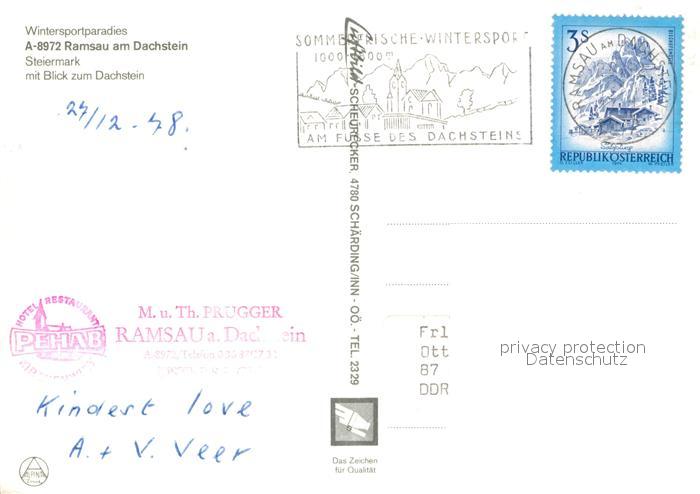 Wintersportparadies
A-8972 Ramsau am Dachstein
Steiermark
mit Blick zum Dachstein
24/12 - 48.
SOMMERFRISCHE · WINTERSPORT
AM FUSSE DES DACHSTEINS
RAMSAU AM DACHSTEIN
3S
REPUBLIK ÖSTERREICH
Luftbild-SCHEURECKER, 4780 SCHÄRDING/INN - OÖ. - TEL. 2329
HOTEL RESTAURANT
PEHAB
M. u. Th. PRUGGER
RAMSAU a. Dachstein
A-8972/Telefon
Frl
Ott
87
DDR
privacy protection
Datenschutz
Kindest love
A. + V. Veer
Das Zeichen
für Qualität